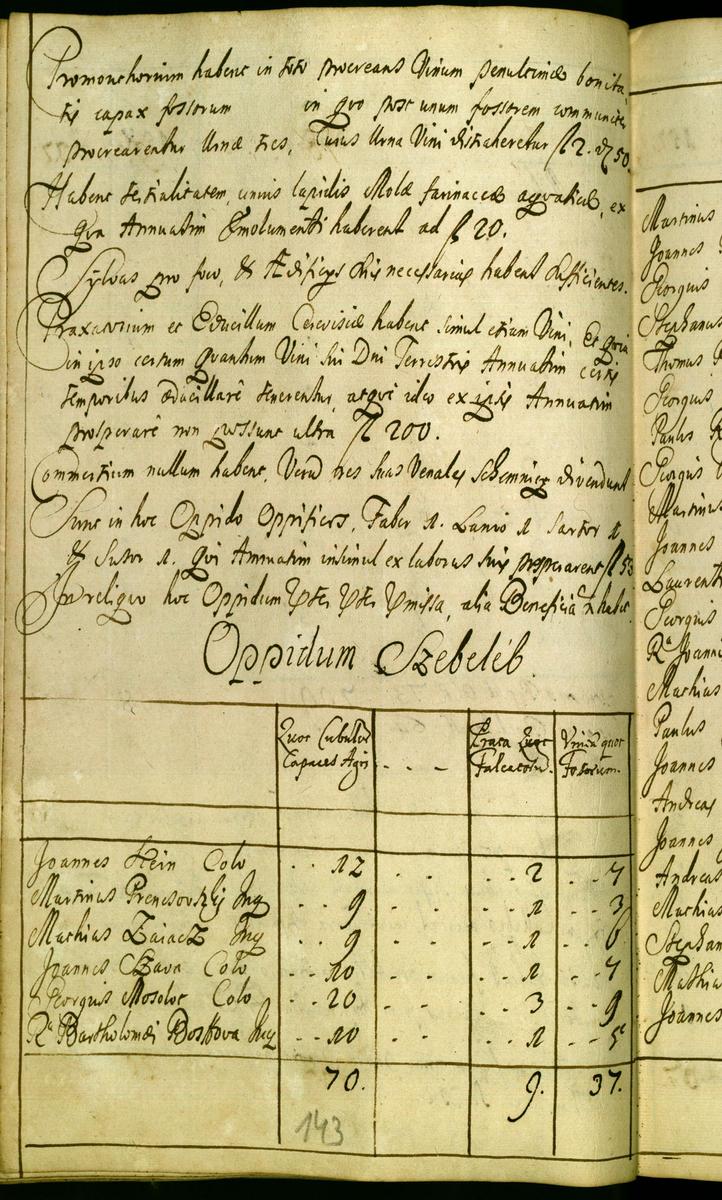 Promonthorium habent in toto procreans Vinum penultimæ bonita
tis capax fossorum in quo post unum fossorem communiter
procrearentur Urnæ tres, Cuius Urna Vini distraheretur fl 2. d 50
Habent fertialitatem, unius lapidis Molæ farinaceæ aquaticæ, ex
qua Annuatim Emolumenti haberent ad fl 20.
Sylvas pro foco, & Ædificijs necessarias habent sufficientes.
Braxatorium et Educillum Cerevisiæ habent simul etiam Vini, Et quia
in ipso certum quantum Vini sui Dni Terrestris Annuatim certis
temporibus educillare tenerentur, atque ideo ex ipsis Annuatim
prosperare non possunt ultra fl 200.
Commertium nullum habent, Verum res suas Venales Schemnicz divendunt
Sunt in hoc Oppido Opifices, Faber 1. Lanio 1 Sartor 1
& Sutor 1. qui Annuatim insimul ex laboribus suis prosperarent fl 53
In reliquo hoc Oppidum missa, alia Beneficia n habet
Oppidum Szebeléb
Quot Cubulor Capaces Agri
. - -
Prata Quot Falcatorū.
Vineæ quot Fossorum.
Joannes Hein Colo - - 12 - - - - 2 - - 7
Martinus Prencsovszkij Inq - - 9 - - - - 1 - - 3
Mathias Zaiacz Inq - - 9 - - - - 1 - - 6
Joannes Szava Colo - - 10 - - - - 1 - - 7
Georgius Mosoloc Colo - - 20 - - - - 3 - - 9
Ra Bartholomæi Boskova Inq - - 10 - - - - 1 - - 5
70. 9. 37.
143
Martinus
Joannes
Georgius
Stephanus
Thomas
Georgius
Paulus
Georgius
Martinus
Joannes
Laurenti
Georgius
Ra Joanni
Mathias
Paulus
Joannes
Andreas
Joannes
Andreas
Mathias
Stephan
Mathia
Joannes